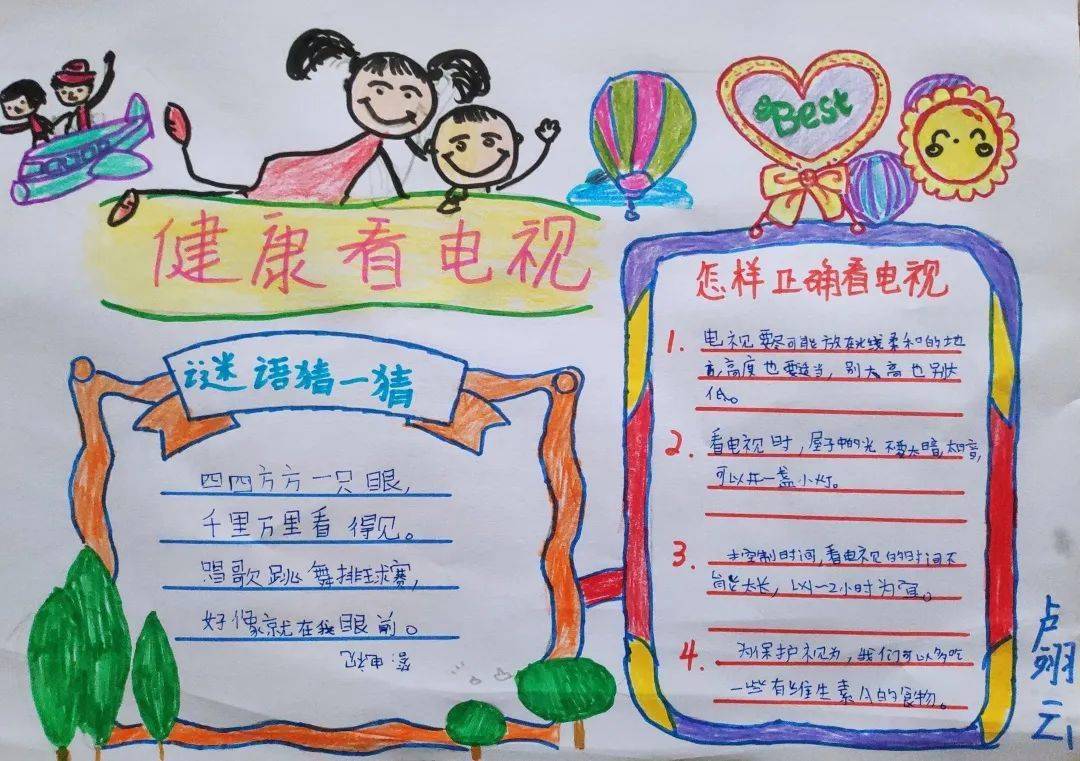 健康看电视
谜语猜一猜
四四方方一只眼,
千里万里看得见。
唱歌跳舞排球赛,
好像就在我眼前。
答:电视
Best
怎样正确看电视
1. 电视要尽可能放在线柔和的地
方,高度也要适当,别太高也别太
低。
2. 看电视时,屋子中的光不要太暗,太暗,
可以开一盏小灯。
3. 控制时间,看电视的时间不
能太长,以1~2小时为宜。
4. 为保护视力,我们可以多吃
一些有维生素A的食物。
卢翊云